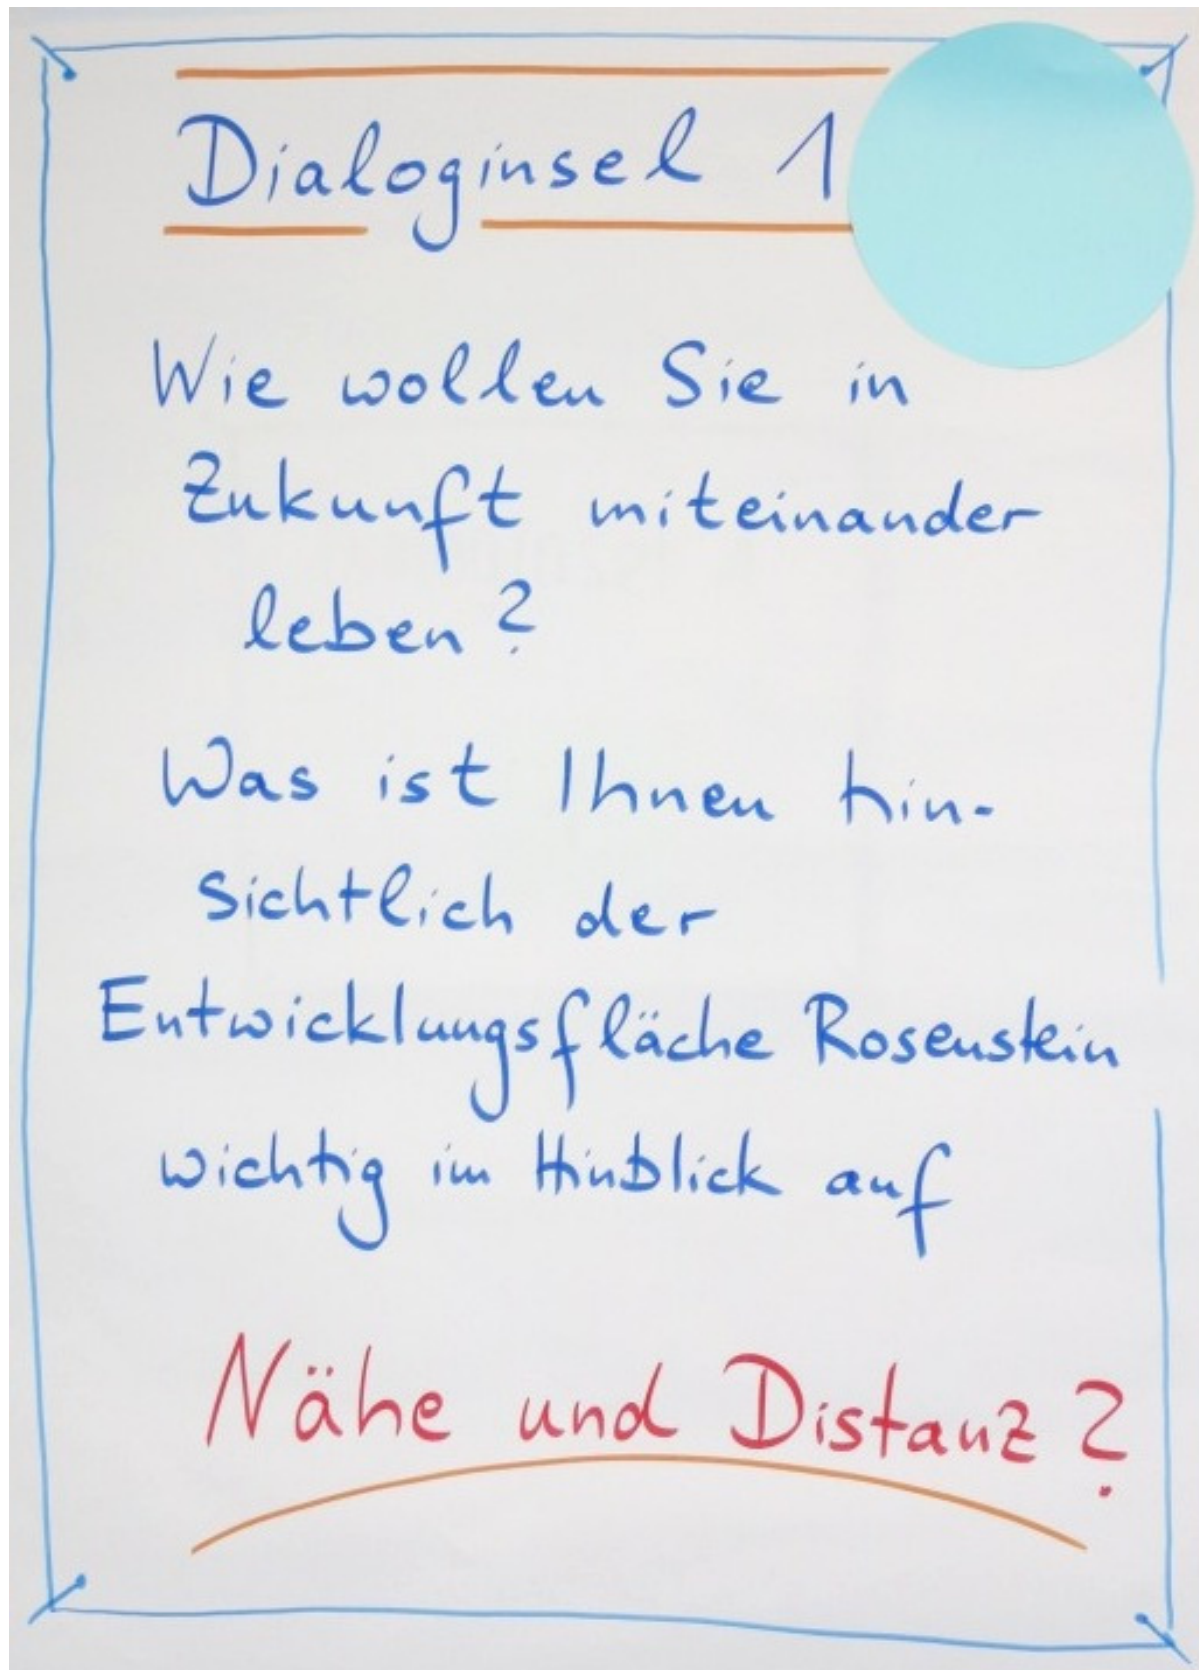 Dialoginsel 1
Wie wollen Sie in
Zukunft miteinander
leben?
Was ist Ihnen hin-
sichtlich der
Entwicklungsfläche Rosenstein
wichtig im Hinblick auf
Nähe und Distanz?